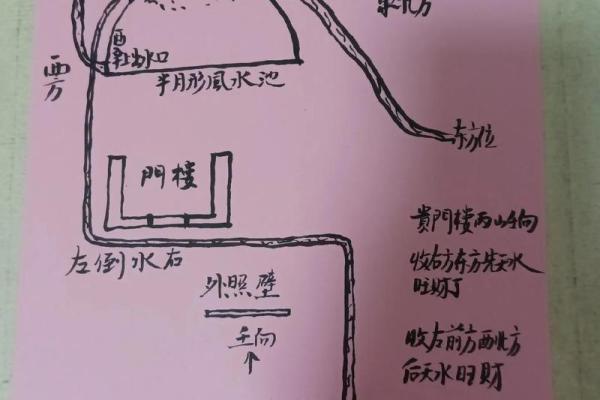 东北方
酉
出水口
西方
半月形風水池
东方位
門楼
貴門楼丙山壬向
收右方东方先天水
旺财丁
左倒水右
外照壁
壬向
收左前方西北方
后天水旺財